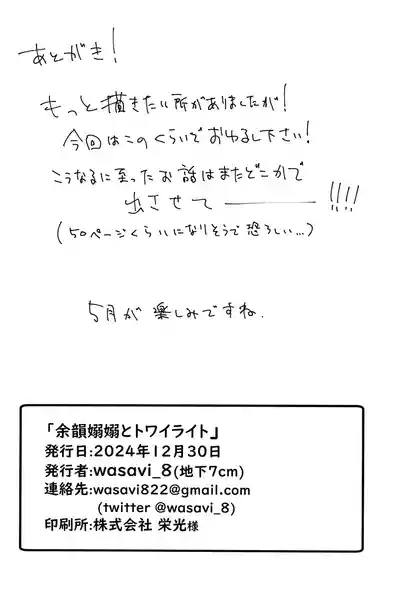 あとがき！
もっと描きたい所がありましたが！
今回はこのくらいでおゆるし下さい！
こうなるに至ったお話はまたどこかで
出させて――!!!!
(50ページくらいになりそうで恐ろしい…)
5月が楽しみですね.
「余韻嫋嫋とトワイライト」
発行日:2024年12月30日
発行者:wasavi_8(地下7cm)
連絡先:wasavi822@gmail.com
(twitter @wasavi_8)
印刷所:株式会社 栄光様